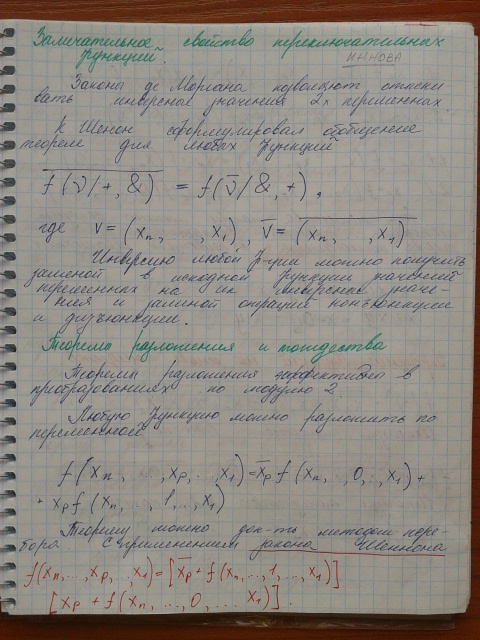 Замечательное свойство переключательных
функций.
Законы де Моргана позволяют отыски
вать инверсные значения 2х переменных.
К Шенон сформулировал обобщение
теорем для любых функций
f(ν/+, &) = f(ν̅/&, +),
где v = (xn, , x1), v̅ = (xn, , x1)
Инверсию любой ф-ции можно получить
заменой в исходной функции значений
переменных на их инверсные значе-
ния и заменой операций конъюнкции
и дизъюнкции.
Теоремы разложения и тождества
Теоремы разложения эффективны в
преобразованиях по модулю 2.
Любую функцию можно разложить по
переменной
f(xn, ..., xp, ..., x1) = x̅p f(xn, ..., 0, .., x1) +
+ xp f(xn, ..., 1, ..., x1)
Теорему можно док-ть методом пере-
бора с применением закона Шеннона
f(xn, ..., xp, ... x1) = [xp + f(xn, ..., 1, ..., x1)]
[xp + f(xn, ..., 0, ... x1)].